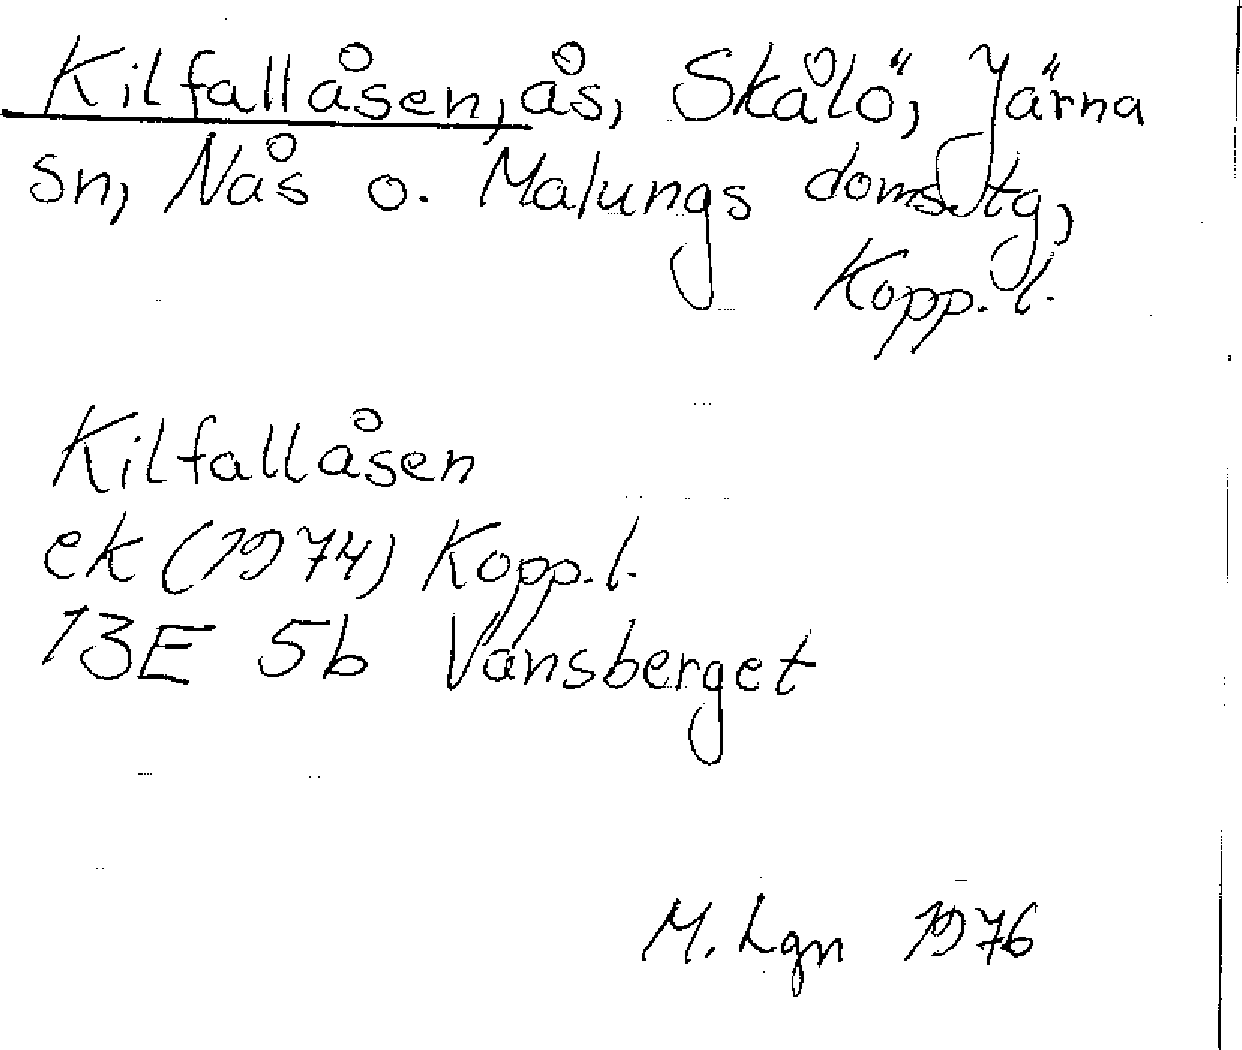 Kilfallåsen, ås, Skålö, Järna
sn, Nås o. Malungs doms.tg,
Kopp. l.
Kilfallåsen
ek (1974) Kopp. l.
13E 5b Vansberget
M. Lgn 1976